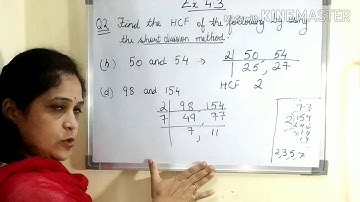 Ex 4.3
KINEMASTER
Q2 Find the HCF of the following by using
the short division method.
(b) 50 and 54 → 2 | 50, 54
25, 27
HCF 2
(d) 98 and 154
2 | 98, 154
7 | 49, 77
7, 11
77
2 154
14
14
14
2,3,5,7